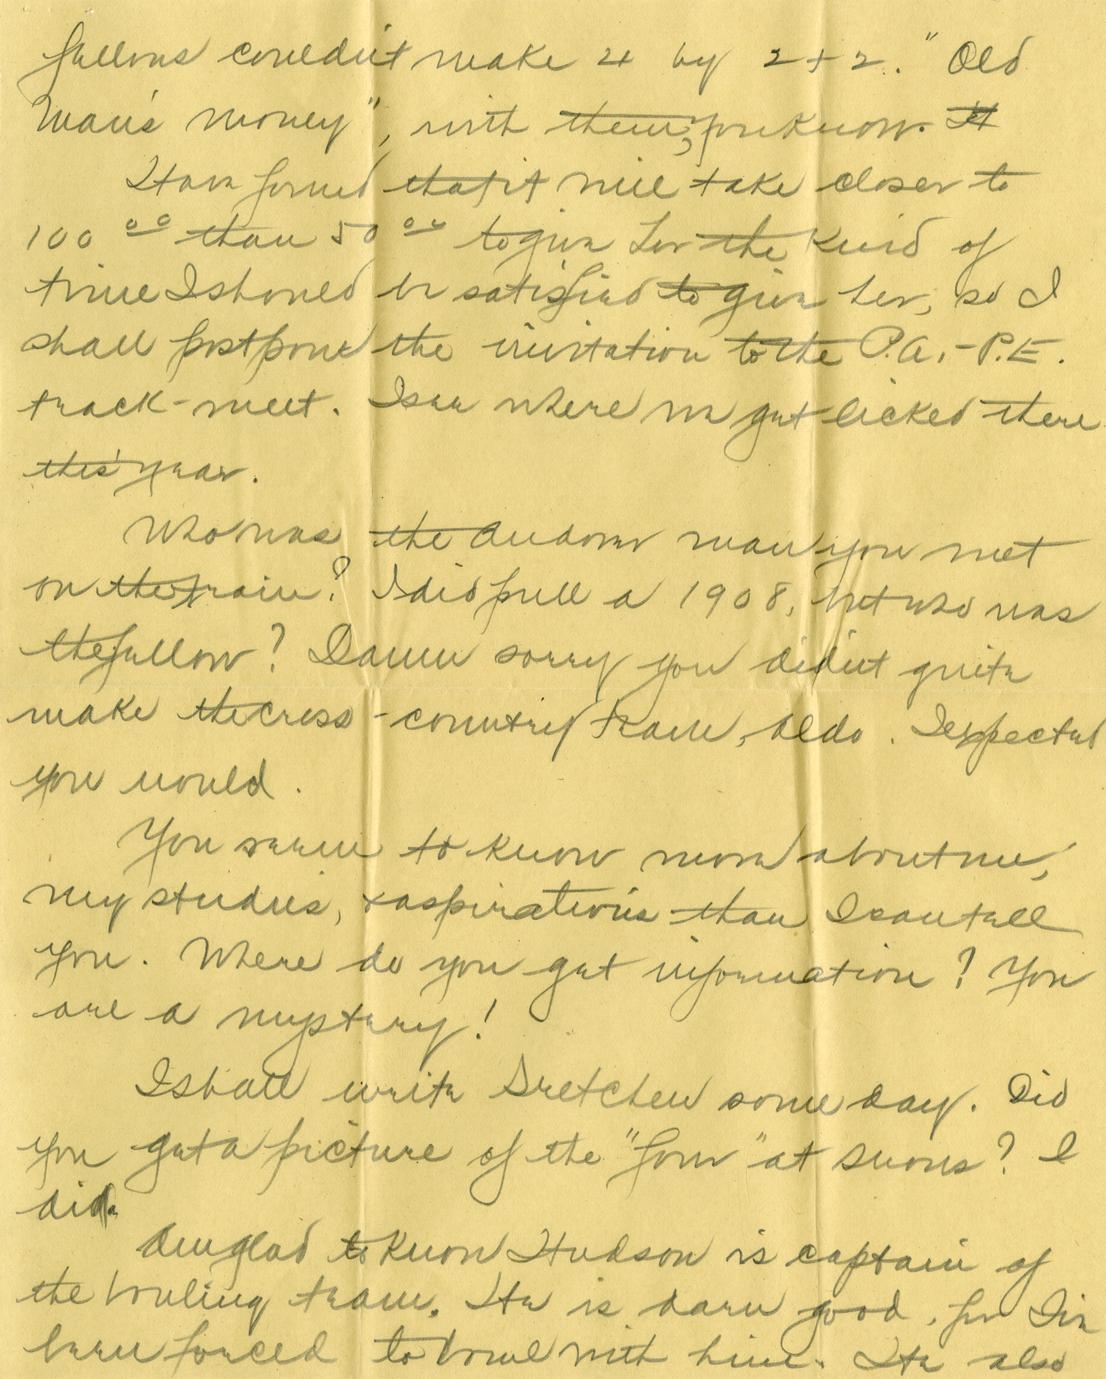 fellows couldn't make 4 by 2 + 2. "Old
Man's money", with them, you know.
Have found that it will take closer to
100 00 than 50 00 to give her the kind of
time I should be satisfied to give her, so I
shall postpone the invitation to the P.A.-P.E.
track-meet. I see where we get licked there
this year.
Who was the Andover man you met
on the train? I did pull a 1908, but who was
the fellow? Damn sorry you didn't quite
make the cross-country team, Aldo. I expected
you would.
You seem to know more about me,
my studies, & aspirations than I can tell
you. Where do you get information? You
are a mystery!
I shall write Gretchen some day. Did
you get a picture of the "four" at Snows? I
did.
Am glad to know Hudson is captain of
the bowling team. He is darn good, for I've
been forced to bowl with him. He also